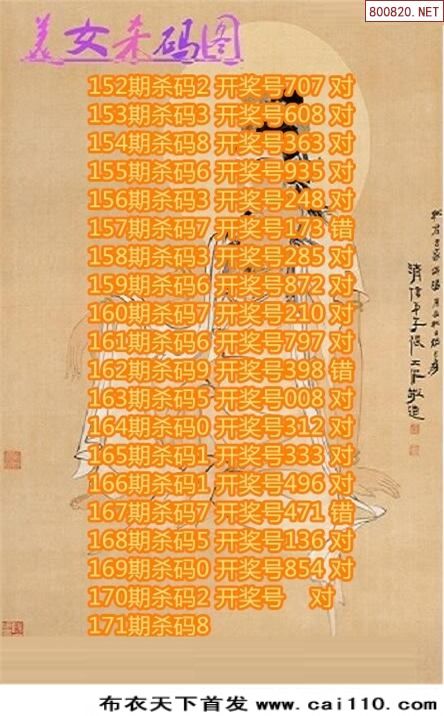 800820.NET
美女杀码图
152期杀码2 开奖号707 对
153期杀码3 开奖号608 对
154期杀码8 开奖号363 对
155期杀码6 开奖号935 对
156期杀码3 开奖号248 对
157期杀码7 开奖号173 错
158期杀码3 开奖号285 对
159期杀码6 开奖号872 对
160期杀码7 开奖号210 对
161期杀码6 开奖号797 对
162期杀码9 开奖号398 错
163期杀码5 开奖号008 对
164期杀码0 开奖号312 对
165期杀码1 开奖号333 对
166期杀码1 开奖号496 对
167期杀码7 开奖号471 错
168期杀码5 开奖号136 对
169期杀码0 开奖号854 对
170期杀码2 开奖号 对
171期杀码8
布衣天下首发 www.cai110.com